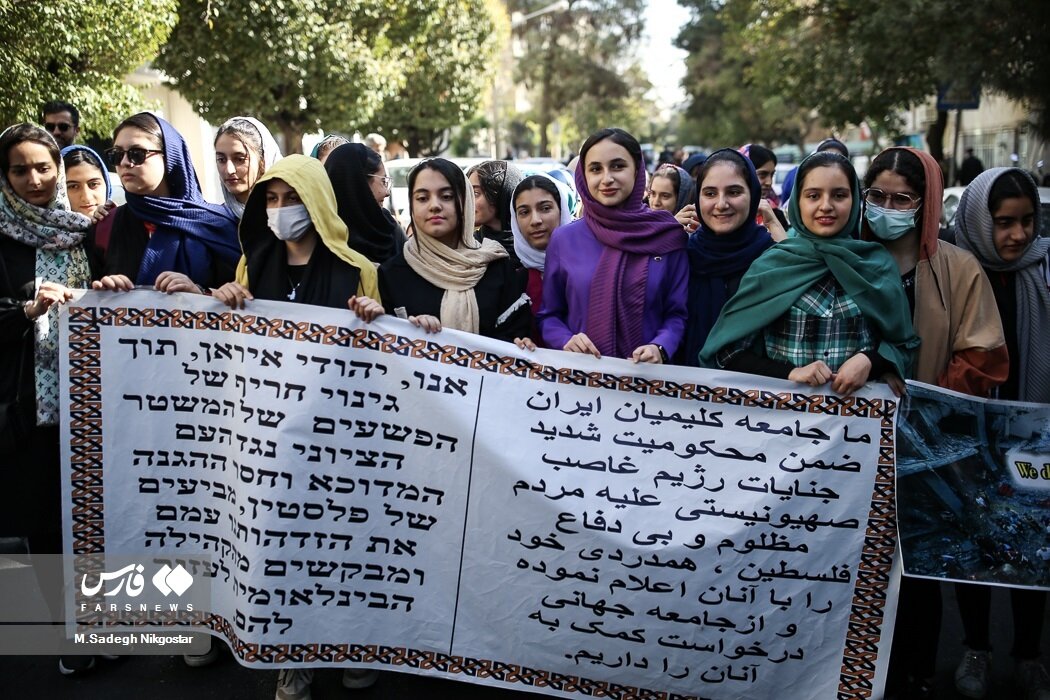 אנו, יהודי איראן, תוך
גינוי חריף של
הפשעים של המשטר
הציוני נגד העם
המדוכא וחסר ההגנה
של פלסטין, מביעים
את הזדהותנו עמם
ומבקשים מהקהילה
הבינלאומית לעזור
להם.
ما جامعه کلیمیان ایران
ضمن محکومیت شدید
جنایات رژیم غاصب
صهیونیستی علیه مردم
مظلوم و بی دفاع
فلسطین ، همدردی خود
را با آنان اعلام نموده
و از جامعه جهانی
درخواست کمک به
آنان را داریم.
We d
فارس
FARSNEWS
M.Sadegh Nikgostar